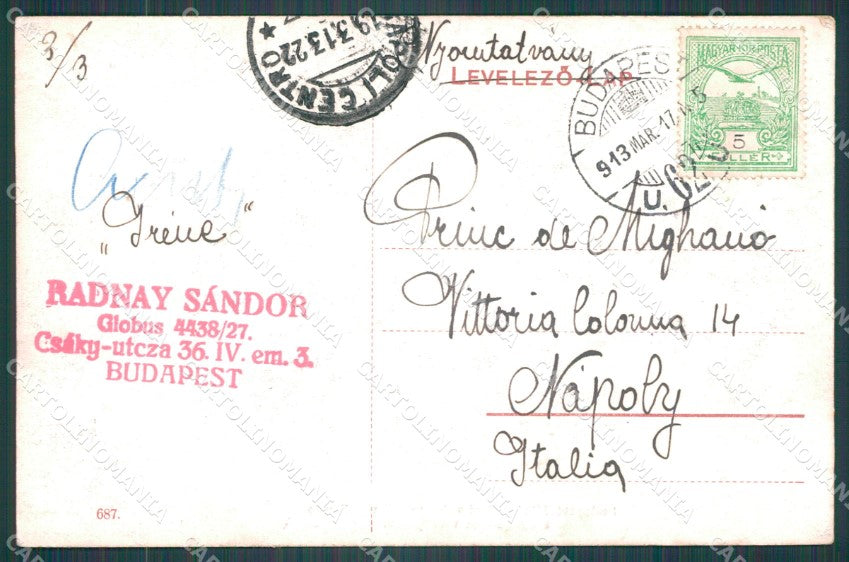 2/3
NAPOLI CENTRO
19.3.13.22
★
Nyomtatvány
LEVELEZŐ-LAP
BUDAPEST
913 MAR. 17.
U. 62
MAGYAR KIR. POSTA
5
FILLÉR
„Iréne“
Princ de Mighanó
Vittoria Colonna 14
Nápoly
Italia
RADNAY SÁNDOR
Globus 4438/27.
Csáky-utcza 36. IV. em. 3.
BUDAPEST
687.
CARTOLINOMANIA